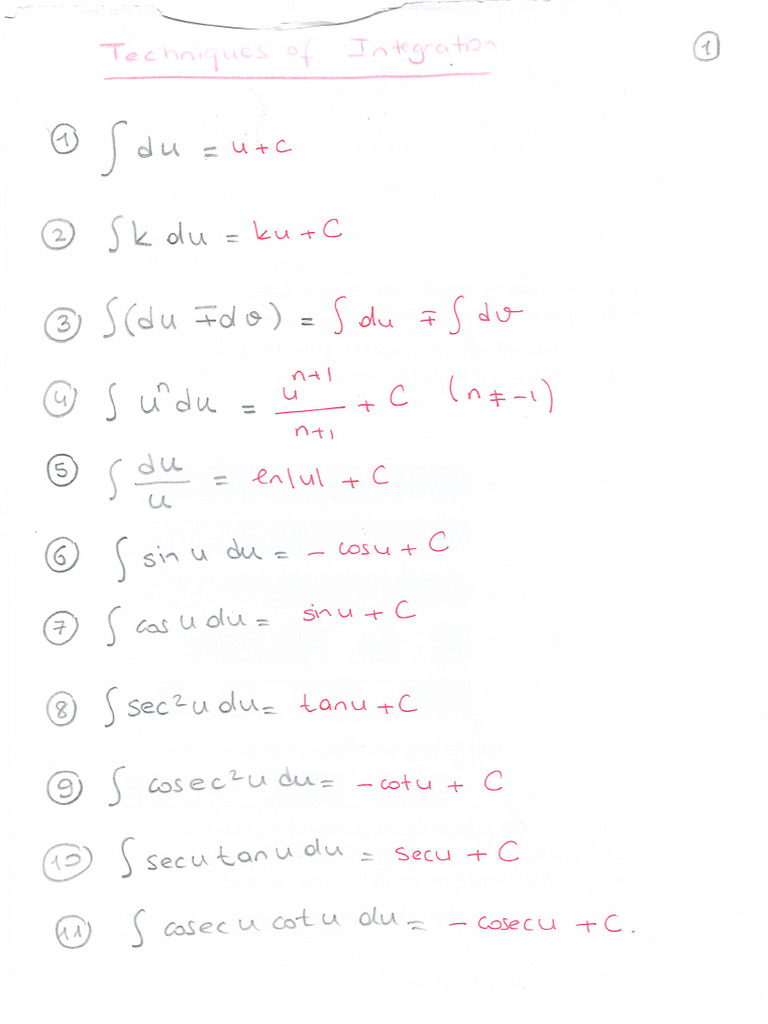 Techniques of Integration ①
① ∫ du = u + c
② ∫ k du = ku + C
③ ∫(du ∓ dv) = ∫ du ∓ ∫ dv
④ ∫ uⁿ du = uⁿ⁺¹/n+1 + C (n ≠ -1)
⑤ ∫ du/u = ln|u| + C
⑥ ∫ sin u du = - cosu + C
⑦ ∫ cos u du = sinu + C
⑧ ∫ sec²u du = tanu + C
⑨ ∫ cosec²u du = -cotu + C
⑩ ∫ secu tanu du = secu + C
⑪ ∫ cosec u cot u du = - cosecu + C.